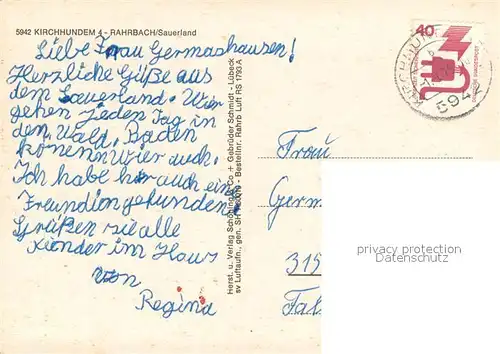 5942 KIRCHHUNDEM 4 - RAHRBACH/Sauerland
Liebe Frau Germashausen!
Herzliche Güße aus
dem Sauerland. Wir
gehen jeden Tag in
den Wald. Baden
können wier auch.
Ich habe hir auch eine
Freundion gefunden.
Grüßen sie alle
kinder im Haus
von
Regina
Herst. u. Verlag Schöning & Co + Gebrüder Schmidt - Lübeck
sv Luftaufn., gen. SH - Bestellnr. Rahrb Luft RS 1793 A
40
KIRCHHUNDEM
5942
Frau
Germ
315
privacy protection
Datenschutz